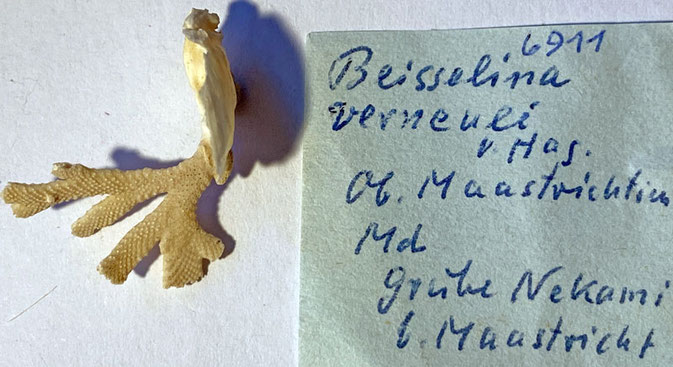 6911
Beisselina
verneuli
v. Hag.
Ob. Maastrichtien
Md
Grube Nekami
b. Maastricht